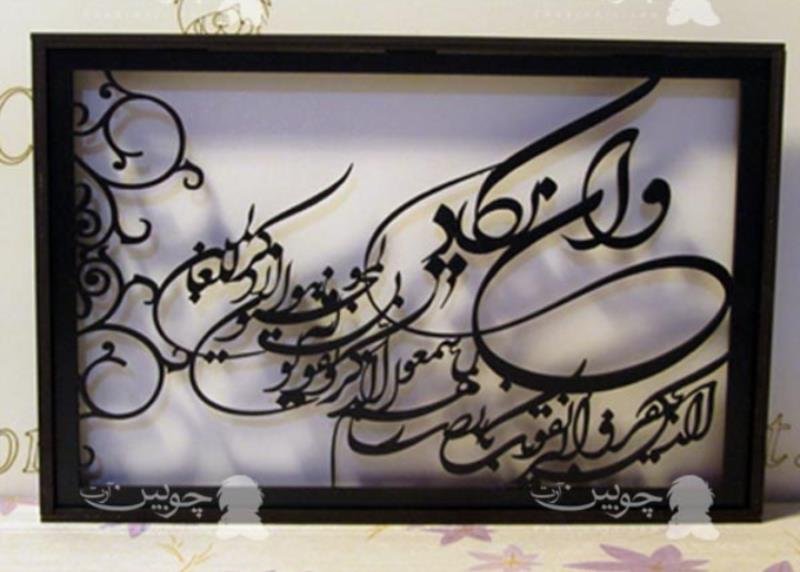 وان یکاد
الذین کفروا لیزلقونک بابصارهم
لما سمعوا الذکر و یقولون
انه لمجنون
و ما هو الا ذکر للعالمین
چوبین آرت
چوبین آرت